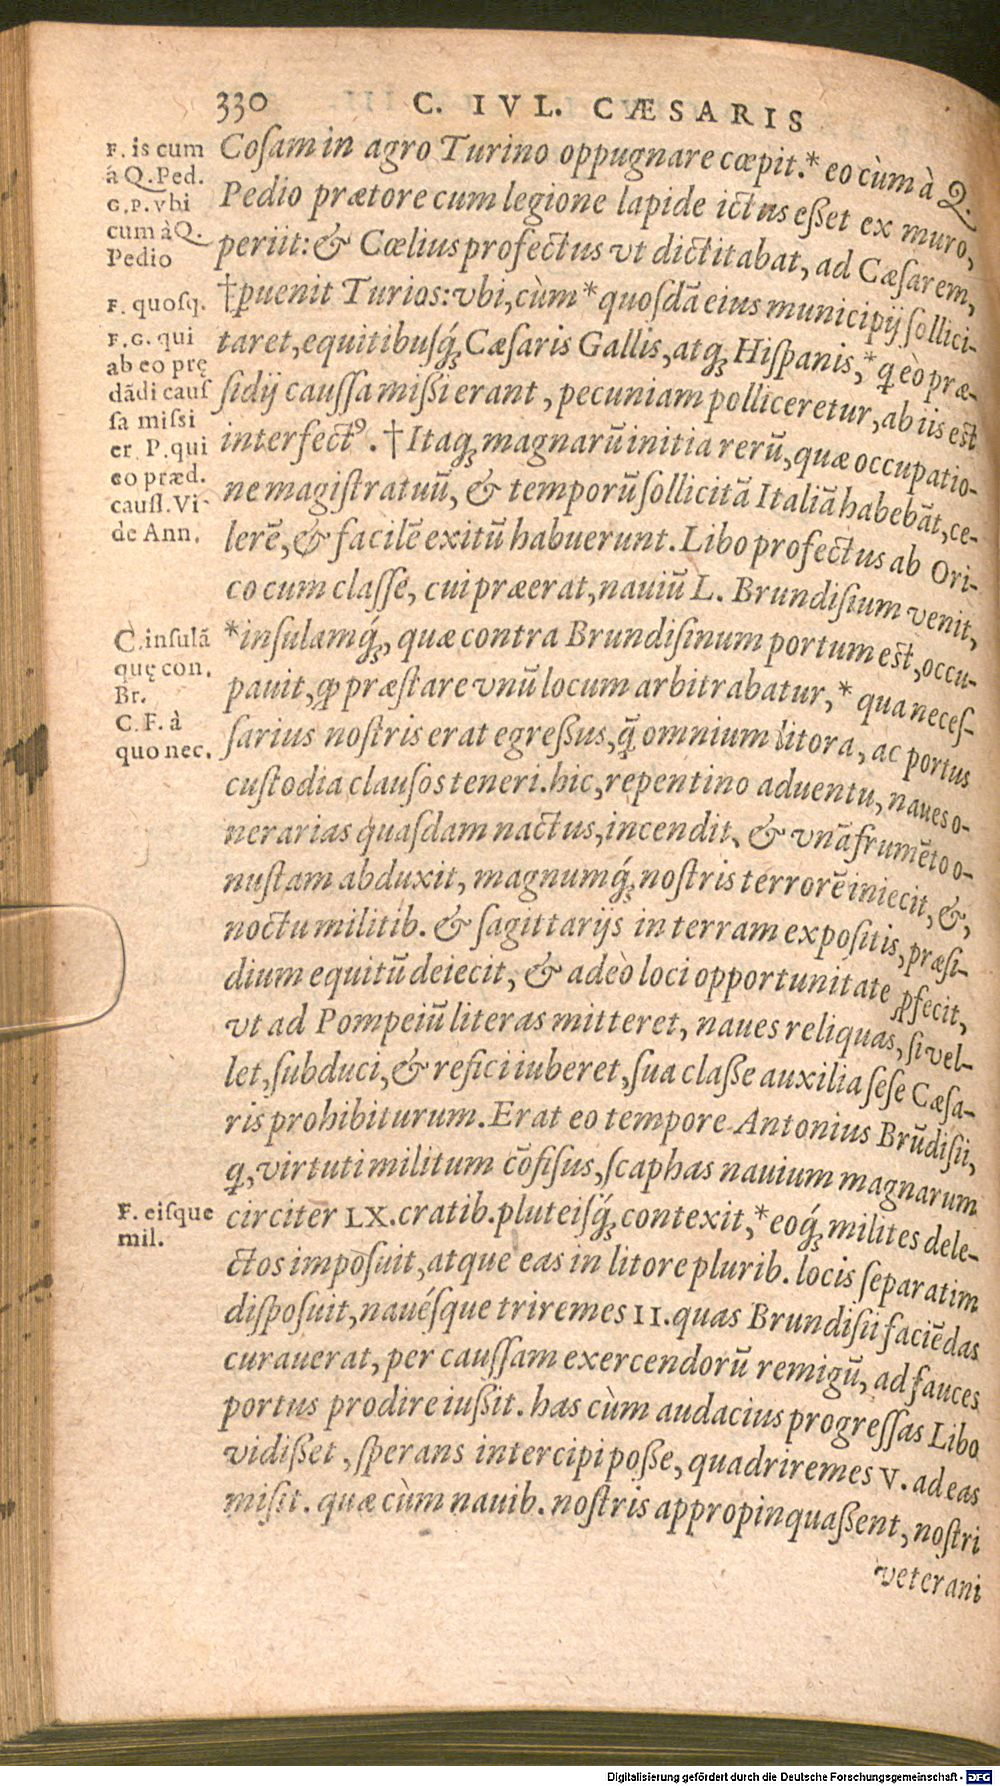 330 C. IVL. CÆSARIS
F. is cum
à Q. Ped.
G.P. vbi
cum à Q.
Pedio
F. quosq.
F.G. qui
ab eo prę
dãdi cauſ
ſa miſsi
er. P. qui
eo præd.
cauſſ. Vi
de Ann.
C. inſulã
quę con.
Br.
C. F. à
quo nec.
F. eiſque
mil.
Coſam in agro Turino oppugnare cœpit.* eo cùm à Q.
Pedio prætore cum legione lapide ictus eßet ex muro,
periit: & Cœlius profectus vt dictitabat, ad Cæſarem,
†ꝑuenit Turios: vbi, cùm* quoſdã eius municipij ſollici-
taret, equitibuſq́; Cæſaris Gallis, atq; Hiſpanis,* q̃ eò præ-
ſidij cauſſa mißi erant, pecuniam polliceretur, ab iis est
interfectꝰ. † Itaq; magnarũ initia rerũ, quæ occupatio-
ne magiſtratuũ, & temporũ ſollicitã Italiã habebãt, ce-
lerẽ, & facilẽ exitũ habuerunt. Libo profectus ab Ori-
co cum claſſe, cui præerat, nauiũ L. Brundiſium venit,
*inſulamq́;, quæ contra Brundiſinum portum est, occu-
pauit, ꝙ præſtare vnũ locum arbitrabatur,* qua neceſ-
ſarius noſtris erat egreßus, q̃ omnium litora, ac portus
cuſtodia clauſos teneri. hic, repentino aduentu, naues o-
nerarias quaſdam nactus, incendit, & vnã frumẽto o-
nuſtam abduxit, magnumq́; noſtris terrorẽ iniecit, &,
noctu militib. & ſagittarijs in terram expoſitis, præſi-
dium equitũ deiecit, & adeò loci opportunitate ꝓfecit,
vt ad Pompeiũ literas mitteret, naues reliquas, ſi vel-
let, ſubduci, & refici iuberet, ſua claße auxilia ſeſe Cæſa-
ris prohibiturum. Erat eo tempore Antonius Brũdiſii,
q̃, virtuti militum cõfiſus, ſcaphas nauium magnarum
circiter LX. cratib. pluteiſq́; contexit,* eoq́; milites dele-
ctos impoſuit, atque eas in litore plurib. locis ſeparatim
diſpoſuit, nauéśque triremes II. quas Brundiſii faciẽdas
curauerat, per cauſſam exercendorũ remigũ, ad fauces
portus prodire iußit. has cùm audacius progreſſas Libo
vidißet, ſperans intercipi poße, quadriremes V. ad eas
miſit. quæ cùm nauib. noſtris appropinquaßent, noſtri
veterani
Digitalisierung gefördert durch die Deutsche Forschungsgemeinschaft - DFG